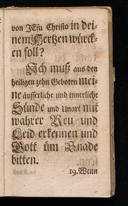 von JEsu Christo in dei-
nem Hertzen würck-
en soll?
Ich muß aus den
heiligen zehn Geboten mei-
ne äusserliche und innerliche
Sünde und Unart mit
wahrer Reu und
Leid erkennen und
Gott um Gnade
bitten.
19. Wenn